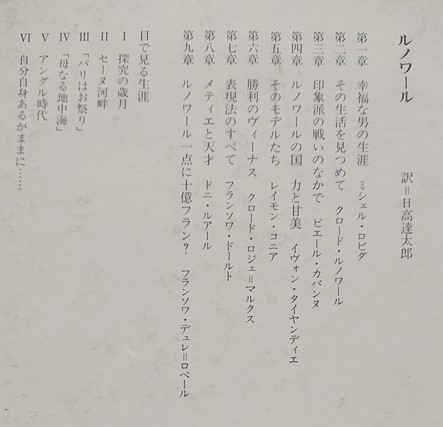 ルノワール　訳＝日高達太郎
第一章　幸福な男の生涯　ミシェル・ロビダ
第二章　その生活を見つめて　クロード・ルノワール
第三章　印象派の戦いのなかで　ピエール・カバンヌ
第四章　ルノワールの国　力と甘美　イヴォン・タイヤンディエ
第五章　そのモデルたち　レイモン・コニア
第六章　勝利のヴィーナス　クロード・ロジェ＝マルクス
第七章　表現法のすべて　フランソワ・ドールト
第八章　メティエと天才　ドニ・ルアール
第九章　ルノワール一点に十億フラン？　フランソワ・デュレ＝ロベール
目で見る生涯
Ⅰ　探究の歳月
Ⅱ　セーヌ河畔
Ⅲ　「パリはお祭り」
Ⅳ　「母なる地中海」
Ⅴ　アングル時代
Ⅵ　自分自身あるがままに……